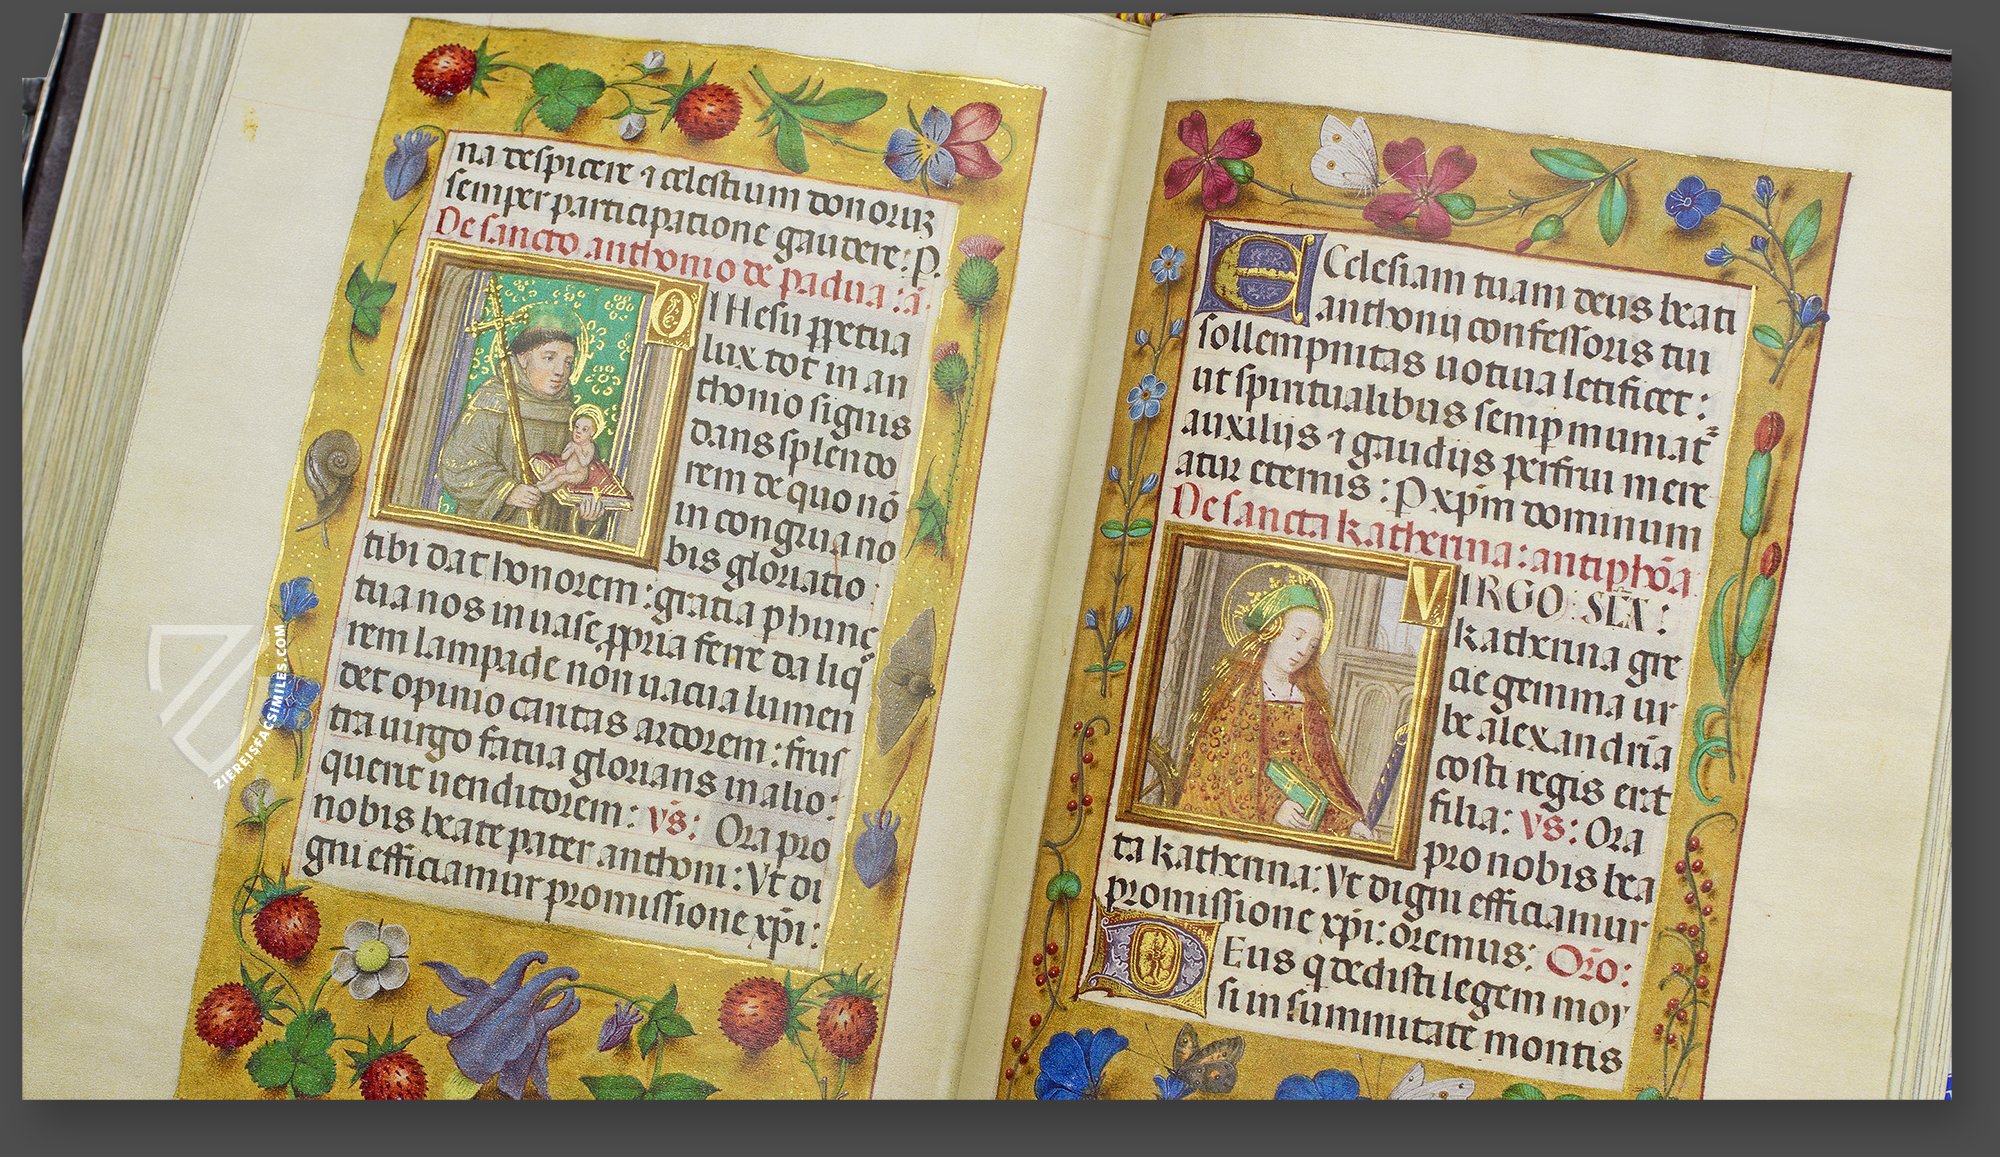 na despicere ⁊ celestium donoruꝫ
semper participatione gaudere: P.
De sancto anthonio de padua: a͞.
O I Hesu ꝑpetua
lux tot in an
thonio signis
dans splendo
rem de quo no͞
in congrua no
bis gloriatio:
tibi dat honorem: gratia p hunc
tua nos in uase ꝓpria ferre da liq᷒
rem lampade non uacua lumen
det opinio caritas ardorem: frus
tra uirgo fatua glorians in alio:
querit uenditorem: vs͞: Ora pro
nobis beate pater anthoni: Vt di
gni efficiamur promissione xp͞i:
ECclesiam tuam deus beati
anthonij confessoris tui
sollempnitas uotiua letificet:
ut spiritualibus semp muniat᷒
auxilijs ⁊ gaudijs perfrui mere
atur eternis: P xp͞m dominum
De sancta katherina: antipho͞a
VIRGO: SEX:
katherina gre
cie gemma ur
be alexandria
costi regis erat
filia: vs͞: Ora
pro nobis bea
ta katherina: Vt digni efficiamur
promissione xp͞i: oremus: Oro͞:
DEus q dedisti legem moy
si in summitate montis
ZIEREISFACSIMILES.COM